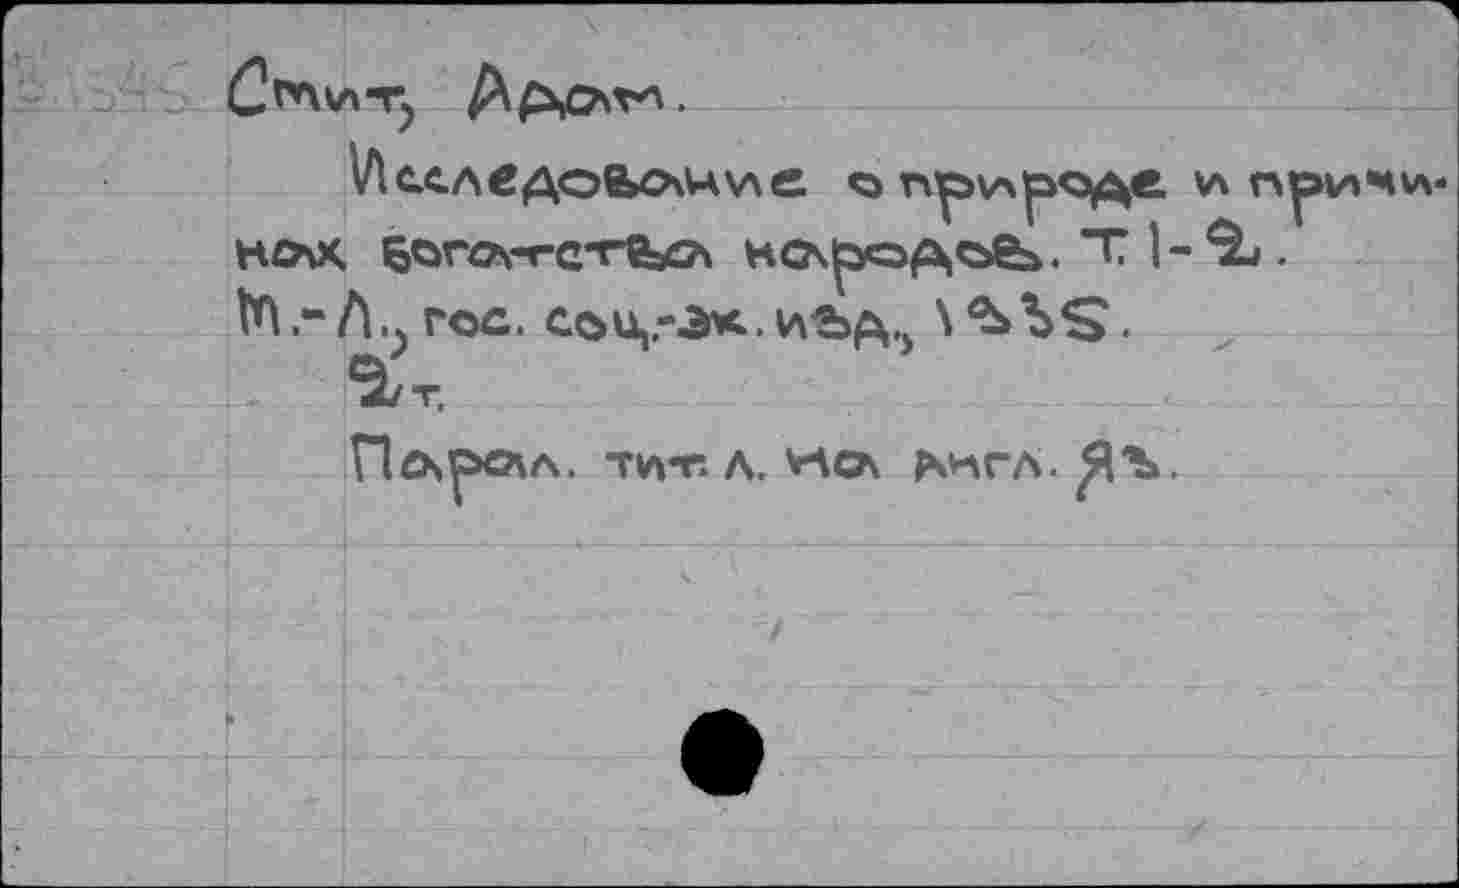 Смит, Адам.
Исследование о природе и причи-
нах богатства народов. Т. 1-2.
М.-Л., гос. соц.-эк. изд., 1935.
2 т.
Паралл. тит. л. на англ. яз.